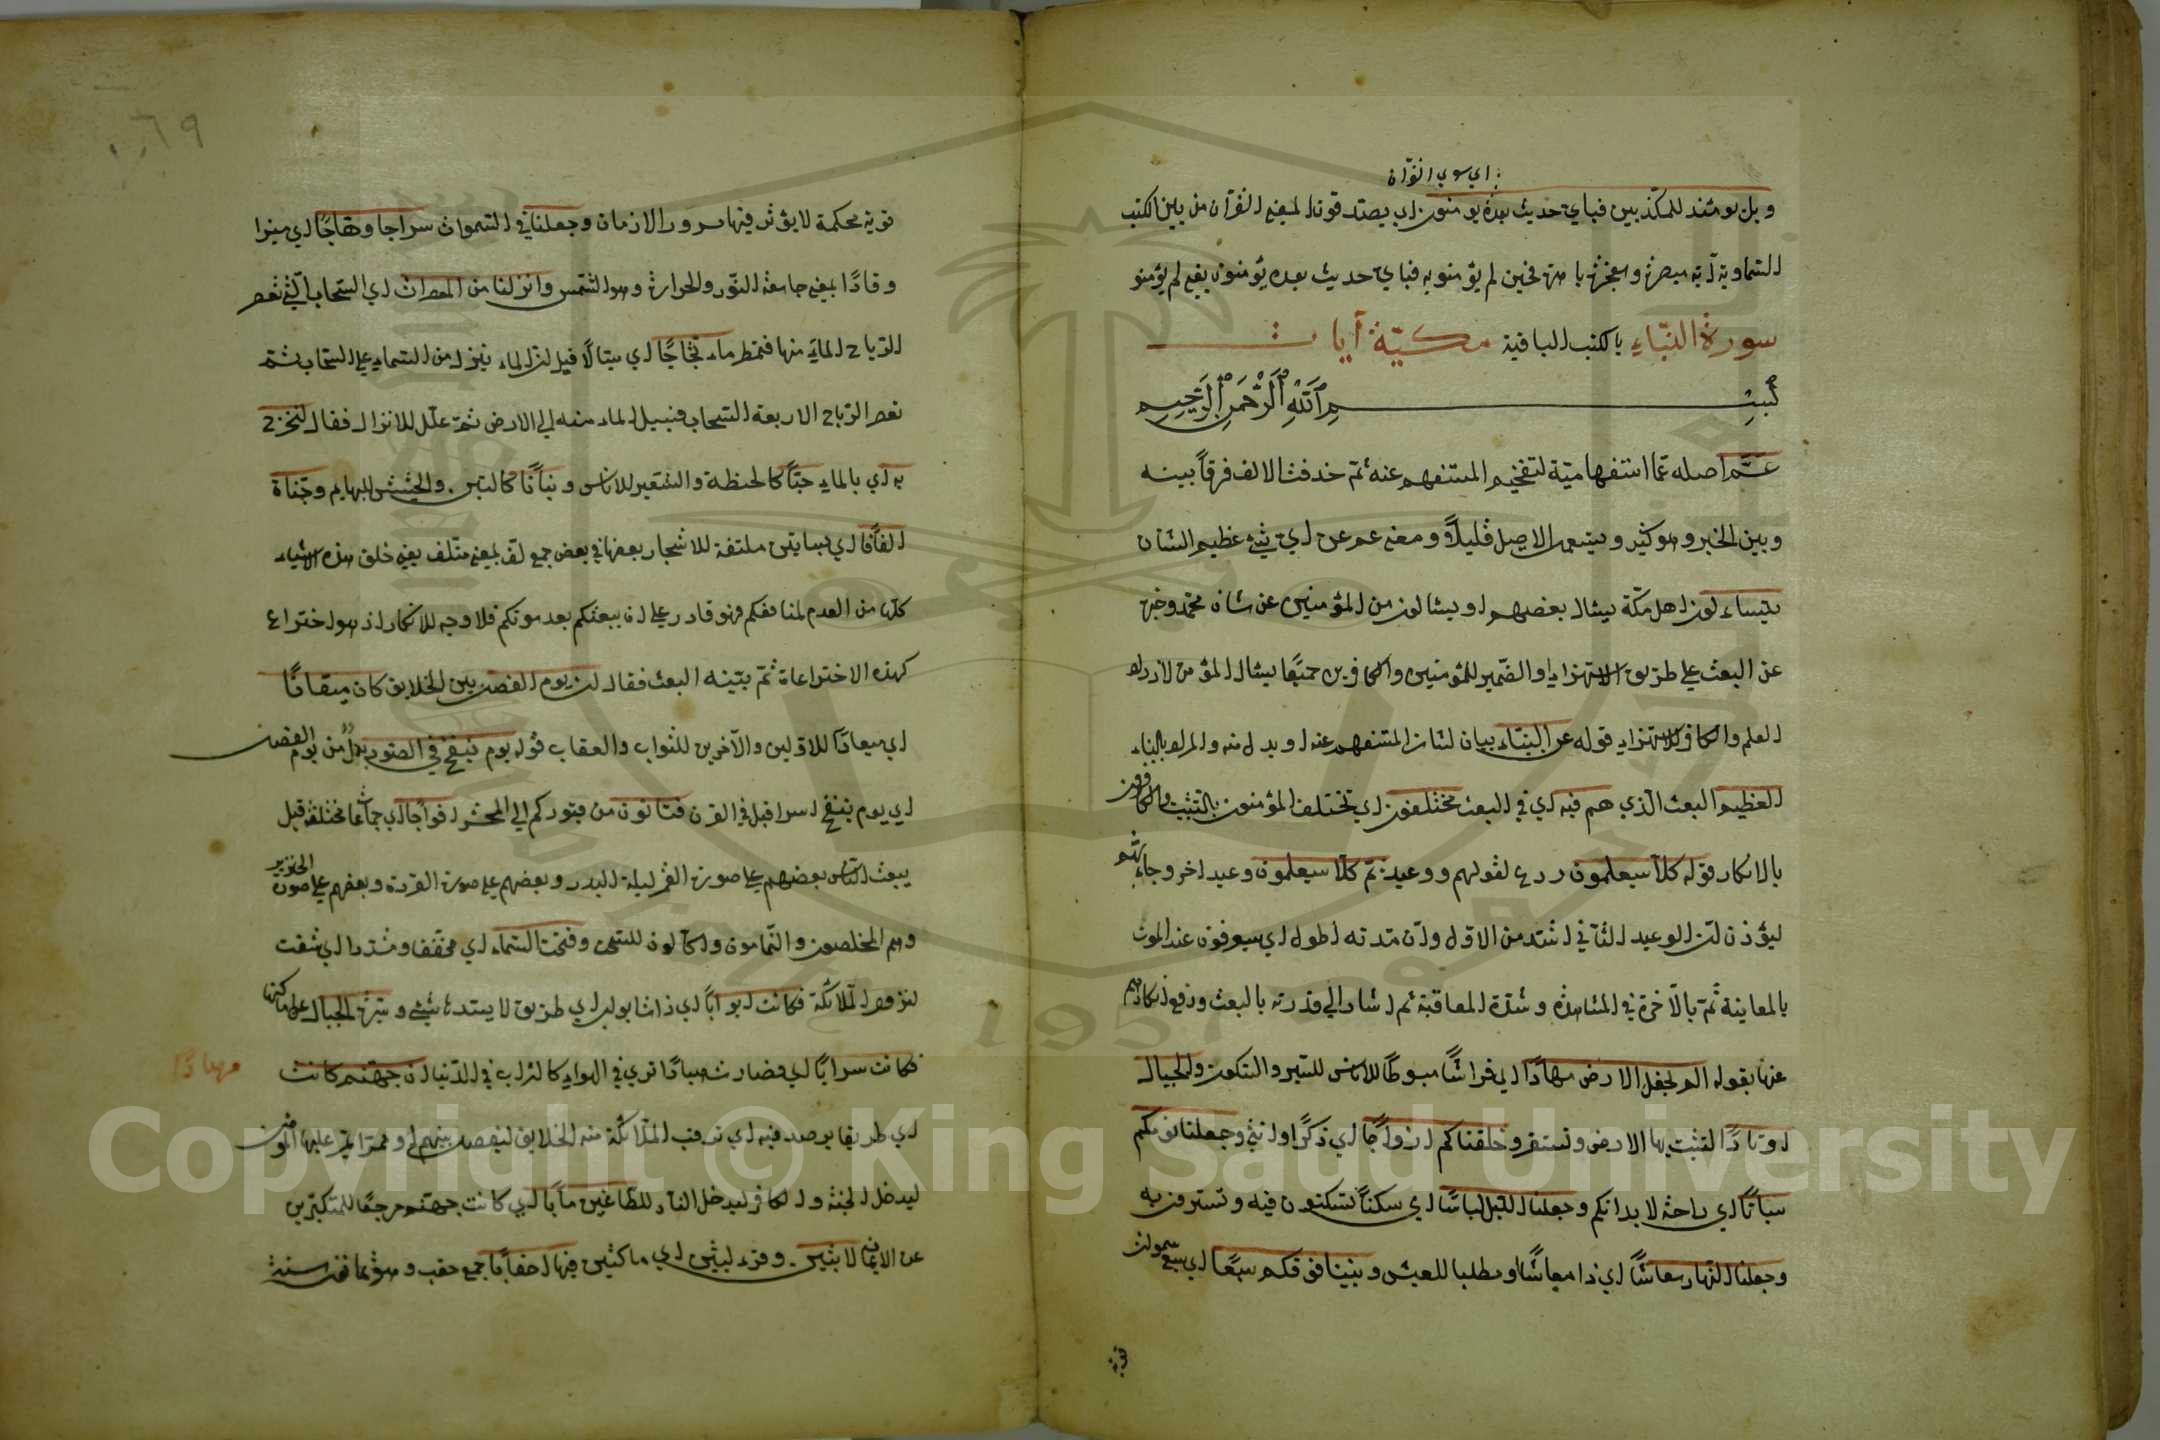 اي سوي القرآن
ويل يومئذ للمكذبين فباي حديث بعده يومنون اي يصدقون لمعنى القرآن من بين الكتب
السماوية آية مبصرة ومعجزة باهرة فحين لم يؤمنوا به فباي حديث بعده يؤمنون يعني لم يؤمنوا
سورة النباء بالكتب الباقية مكية آيات
بسم الله الرحمن الرحيم
عم اصله عما استفهامية لتفخيم المستفهم عنه ثم حذفت الالف فرقاً بينه
وبين الخبر وهو كثير ويستعمل الاصل قليلاً ومعنى عم عن اي شئ عظيم الشان
يتساءلون اهل مكة يسال بعضهم او يسالون من المؤمنين عن شان محمد وخبره
عن البعث على طريق الاستهزاء او الضمير للمؤمنين والكافرين جميعا يسال المؤمن لازدياد
العلم والكافر للاستهزاء قوله عن النباء بيان لشان المستفهم عنه او بدل منه والمراد بالنباء
العظيم البعث الذي هم فيه اي في البعث مختلفون اي تختلف المؤمنون بالتثبت والكافرون
بالانكار قوله كلا سيعلمون ردع لقولهم ووعيد ثم كلا سيعلمون وعيد اخر وجاء بثم
ليؤذن لان الوعيد الثاني اشد من الاول وان مدته اطول اي سيعرفون عند الموت
بالمعاينة ثم بالآخرة في المشاهدة وشدة المعاقبة ثم اشار الي قدرته بالبعث ودفع انكارهم
عنها بقوله الم نجعل الارض مهادًا اي فراشًا مبسوطًا للاناس للسير والسكون والجبال
اوتادًا لتثبت بها الارض وتستقر وخلقناكم ازواجًا اي ذكرًا وانثي وجعلنا نومكم
سباتًا اي راحة لابدانكم وجعلنا الليل لباسًا اي سكنًا تسكنون فيه وتسترون به
وجعلنا النهار معاشًا اي ذا معاشًا او مطلبا للعيش وبنينا فوقكم سبعًا اي سبع سموات
قوية محكمة لا يؤثر فيها مرور الازمان وجعلنا في السموات سراجا وهاجًا اي منيرا
وقادًا بمعنى جامعة النور والحرارة وهو الشمس وانزلنا من المعصرات اي السحاب التي تعصر
الرياح الماء منها فتمطر ماء ثجاجًا اي سيالًا قيل ان الماء ينزل من السماء على السحاب ثم
تعصر الرياح الاربعة السحاب فيسيل الماء منه الي الارض ثم علل للانزال فقال لنخرج
به اي بالماء حبًا كالحنطة والشعير للاناس ونباتًا كالتبن والحشيش للبهايم وجنات
الفافًا اي بساتين ملتفة للاشجار بعضها في بعض جمع لف بمعنى متلف يعني خلق هذه الاشياء
كلها من العدم لمنافعكم فهو قادر على ان يبعثكم بعد موتكم فلا وجه للانكار اذ هو اختراع
كهذه الاختراعات ثم بينه البعث فقال ان يوم الفصل بين الخلايق كان ميقاتًا
اي ميعادًا للاولين والآخرين للثواب والعقاب قوله يوم ينفخ في الصور بدل من يوم الفصل
اي يوم ينفخ اسرافيل في القرن فتاتون من قبوركم الي المحشر افواجًا اي جماعًا مختلفة قيل
يبعث الناس بعضهم على صورة القمر ليلة البدر وبعضهم على صورة القردة وبعضهم على صورة الخنزير
وهم المخلصون والنمامون واكالون للسحت وفتحت السماء اي مخففا ومشددا اي شقت
لنزول الملائكة فكانت ابوابًا اي ذات ابواب اي طريق لا يسدها شئ وسيرت الجبال عن اماكنها
فكانت سرابًا اي فصارت هباءًا تري في الهواء كالسراب في الدنيا ان جهنم كانت
مهادًا
اي طريقا يرصد فيه اي ترقب الملائكة منه الخلايق ليفصل بينهم او ممرا يمر عليها المؤمنون
ليدخل الجنة والكافر ليدخل النار للطاغين مآبًا اي كانت جهنم مرجعًا للمتكبرين
عن الايمان لابثين وقرء لبثين اي ماكثين فيها احقابًا جمع حقب وهو ثمانون سنة